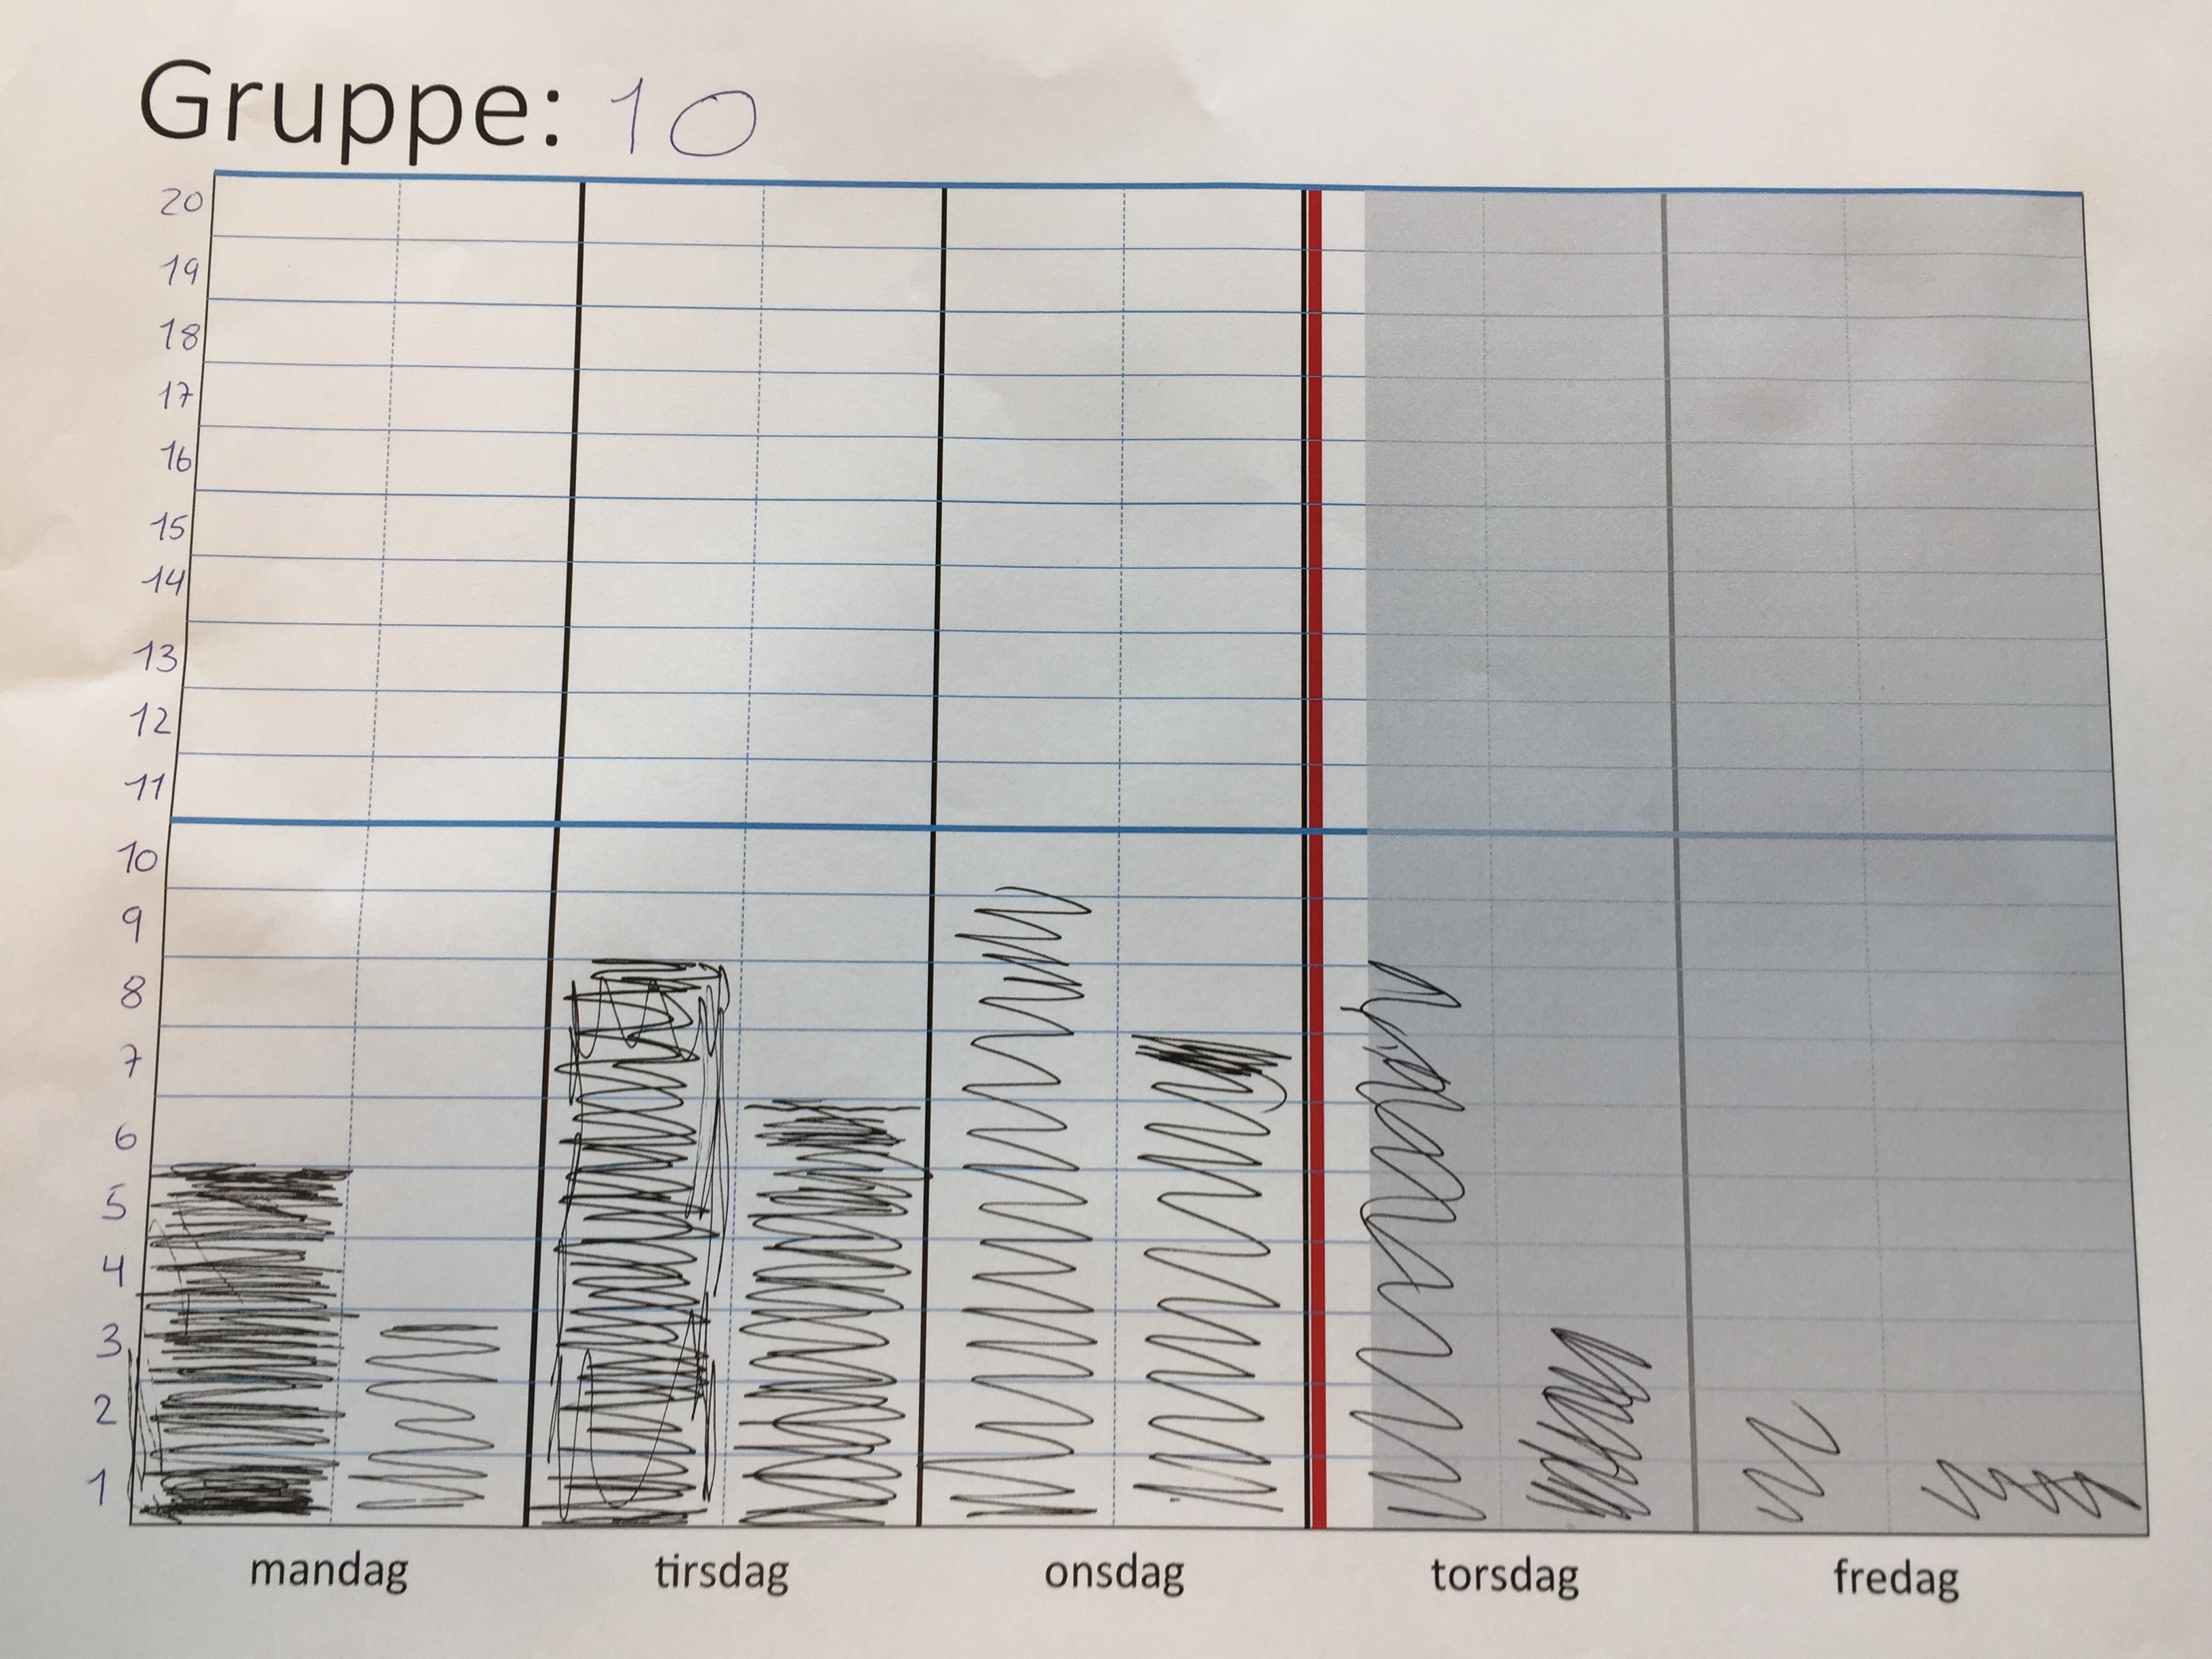 Gruppe: 10
20
19
18
17
16
15
14
13
12
11
10
9
8
7
6
5
4
3
2
1
mandag tirsdag onsdag torsdag fredag